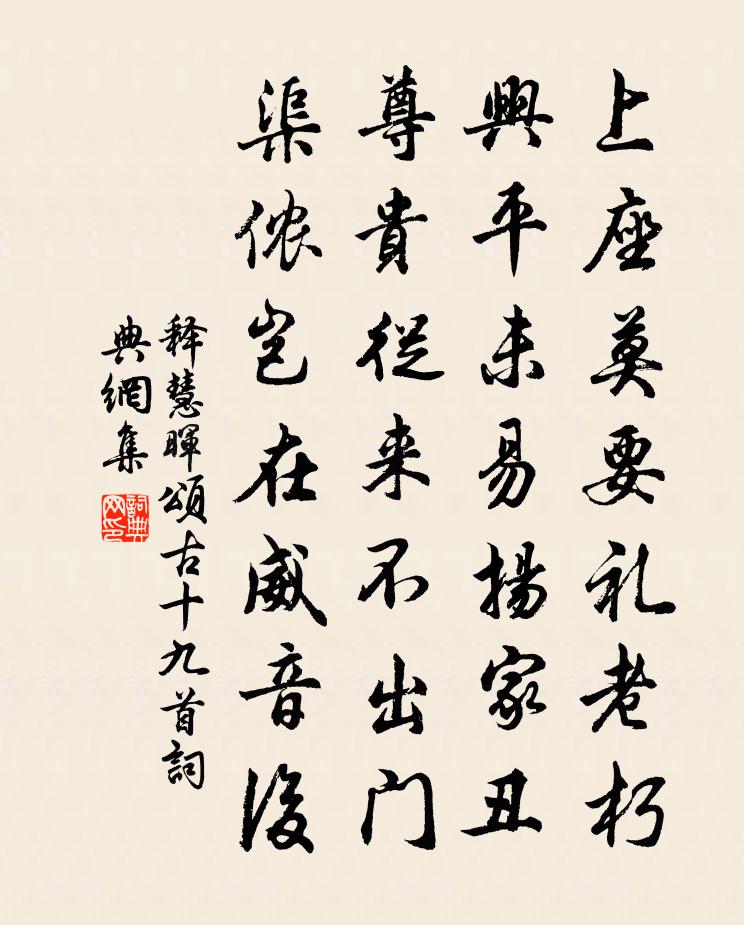 上座莫要礼老朽
興平未易揚家丑
尊貴從来不出門
渠侬岂在威音後
释慧暉頌古十九首詞
典網集
詞典
网印